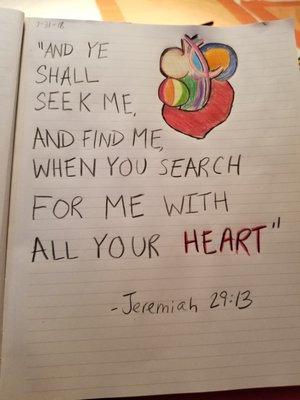 7-31-18
"AND YE
SHALL
SEEK ME,
AND FIND ME,
WHEN YOU SEARCH
FOR ME WITH
ALL YOUR HEART"
-Jeremiah 29:13